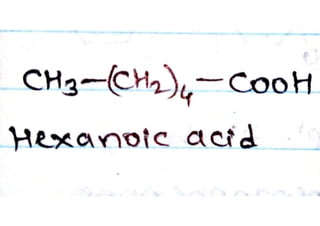 CH₃-(CH₂)₄-COOH
Hexanoic acid